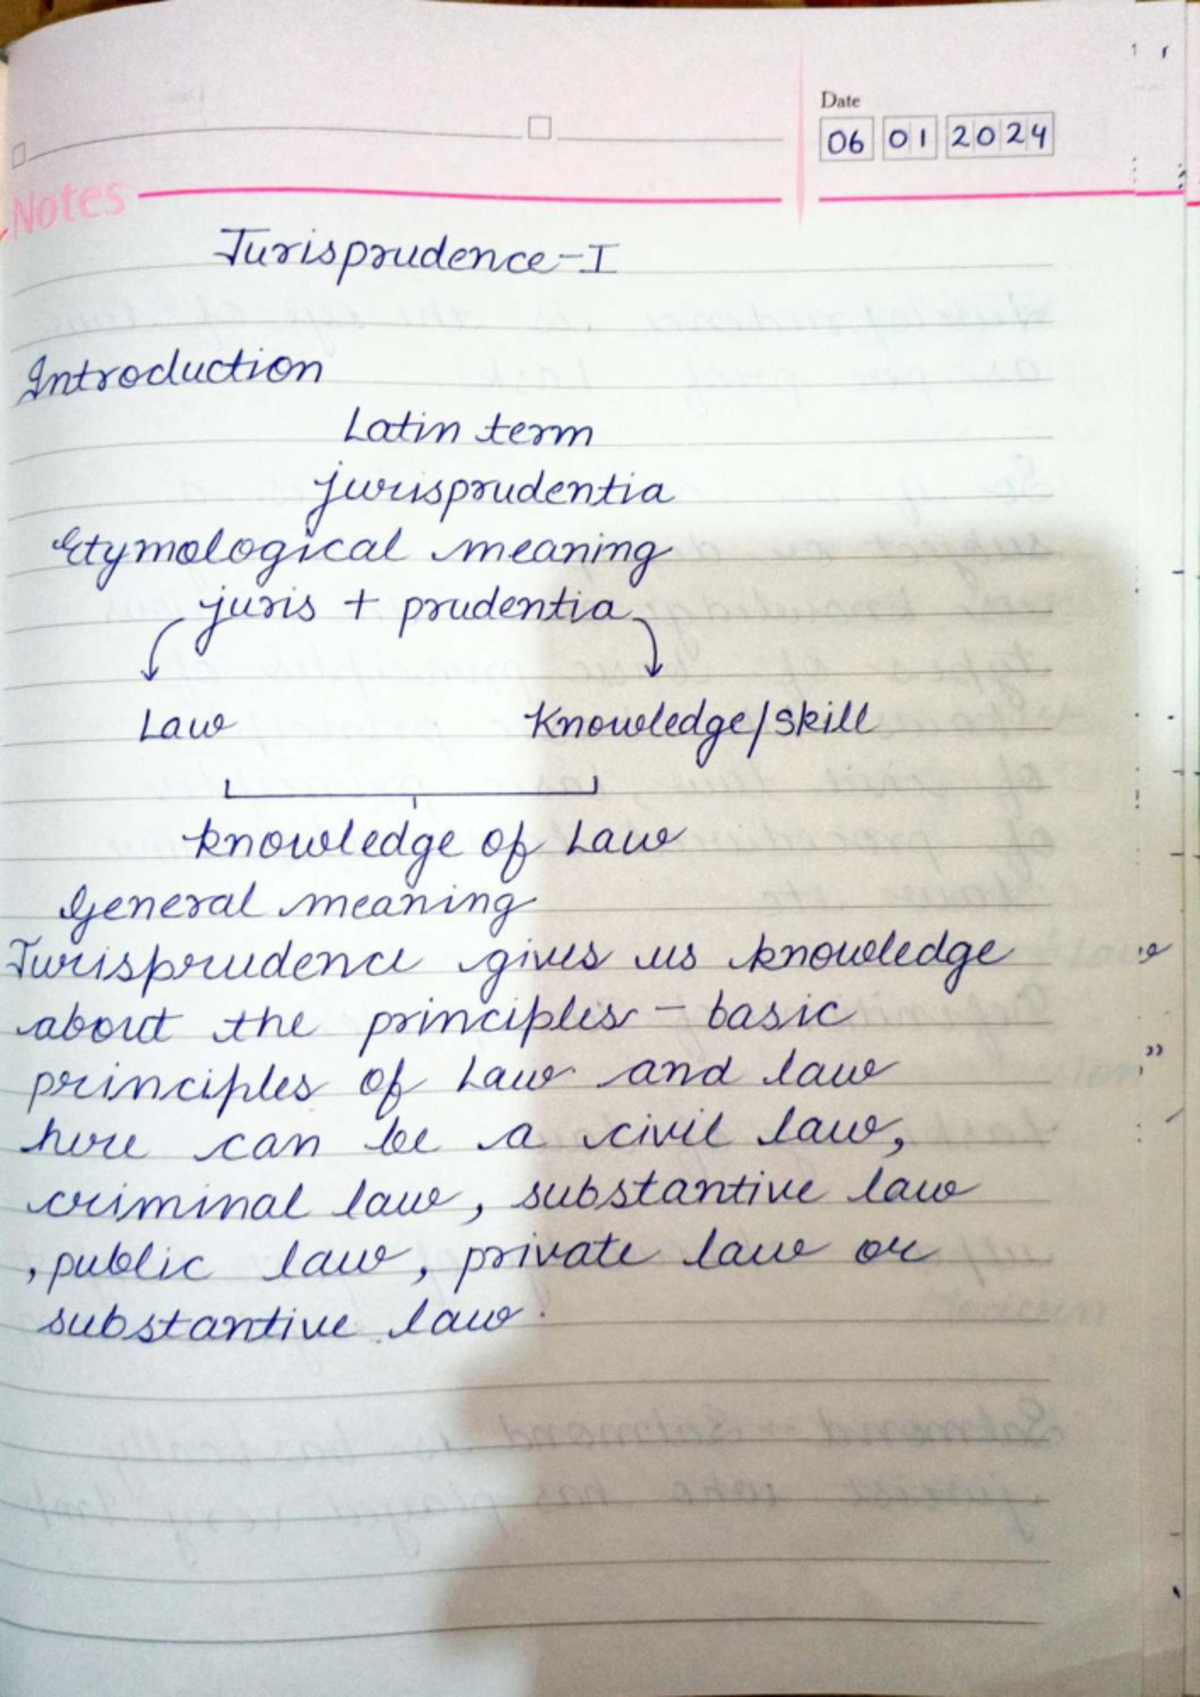 Date
06 01 2024
Notes
Jurisprudence-I
Introduction
Latin term
jurisprudentia
Etymological meaning
juris + prudentia
Law Knowledge/skill
knowledge of Law
General meaning
Jurisprudence gives us knowledge
about the principles - basic
principles of Law and law
here can be a civil law,
criminal law, substantive law
, public law, private law or
substantive law.